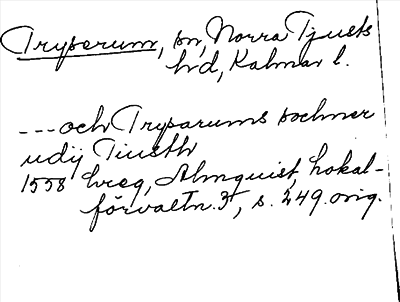 Tryserum, sn, Norra Tjusts
hd, Kalmar l.
---och Tryparums sochner
udij Tiusth
1558 breg, Almquist, Lokal-
förvaltn. 3, s. 249. orig.